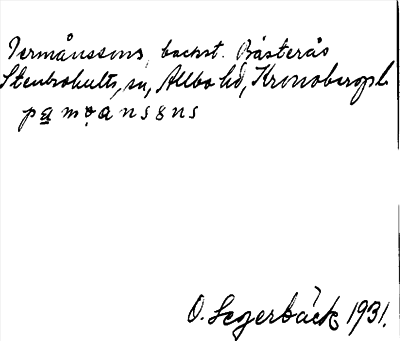 Permånssons, backst. Båsterås
Stenbrohults sn, Allbo hd, Kronobergs l.
pa̲mọansens
O. Segerbäck 1931.